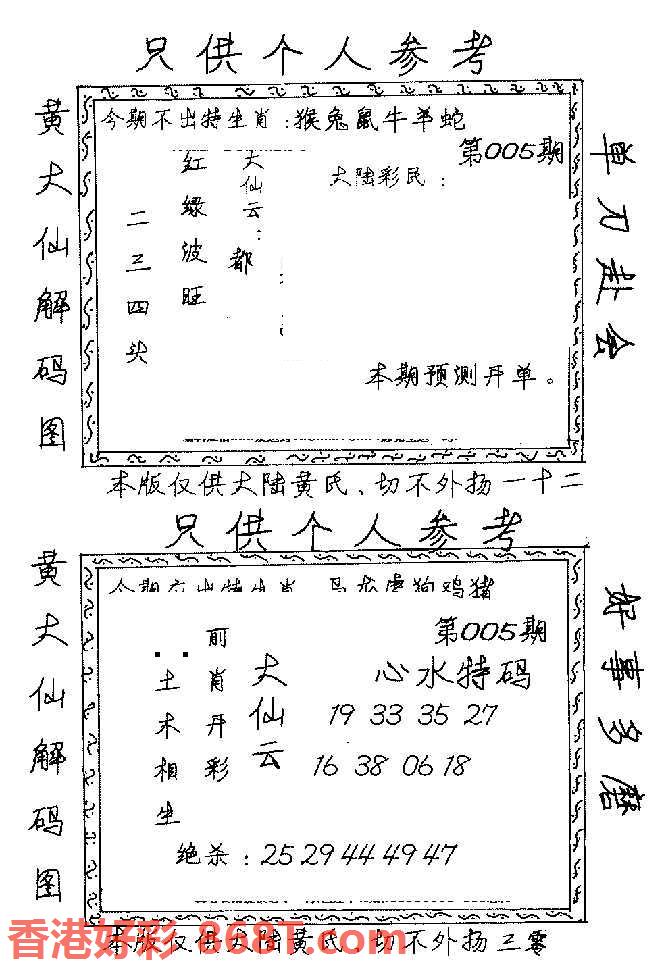 只供个人参考
黄大仙解码图
今期不出特生肖：猴兔鼠牛羊蛇
第005期
大陆彩民：
大仙云：都
红绿波旺
二三四头
本期预测开单。
单刀赴会
本版仅供大陆黄氏、切不外扬一十二
只供个人参考
黄大仙解码图
狗鸡猪
第005期
心水特码
19 33 35 27
16 38 06 18
大仙云
前肖开彩
土木相生
绝杀：25 29 44 49 47
好事多磨
本版仅供大陆黄氏、切不外扬三零
香港好彩.868T.com